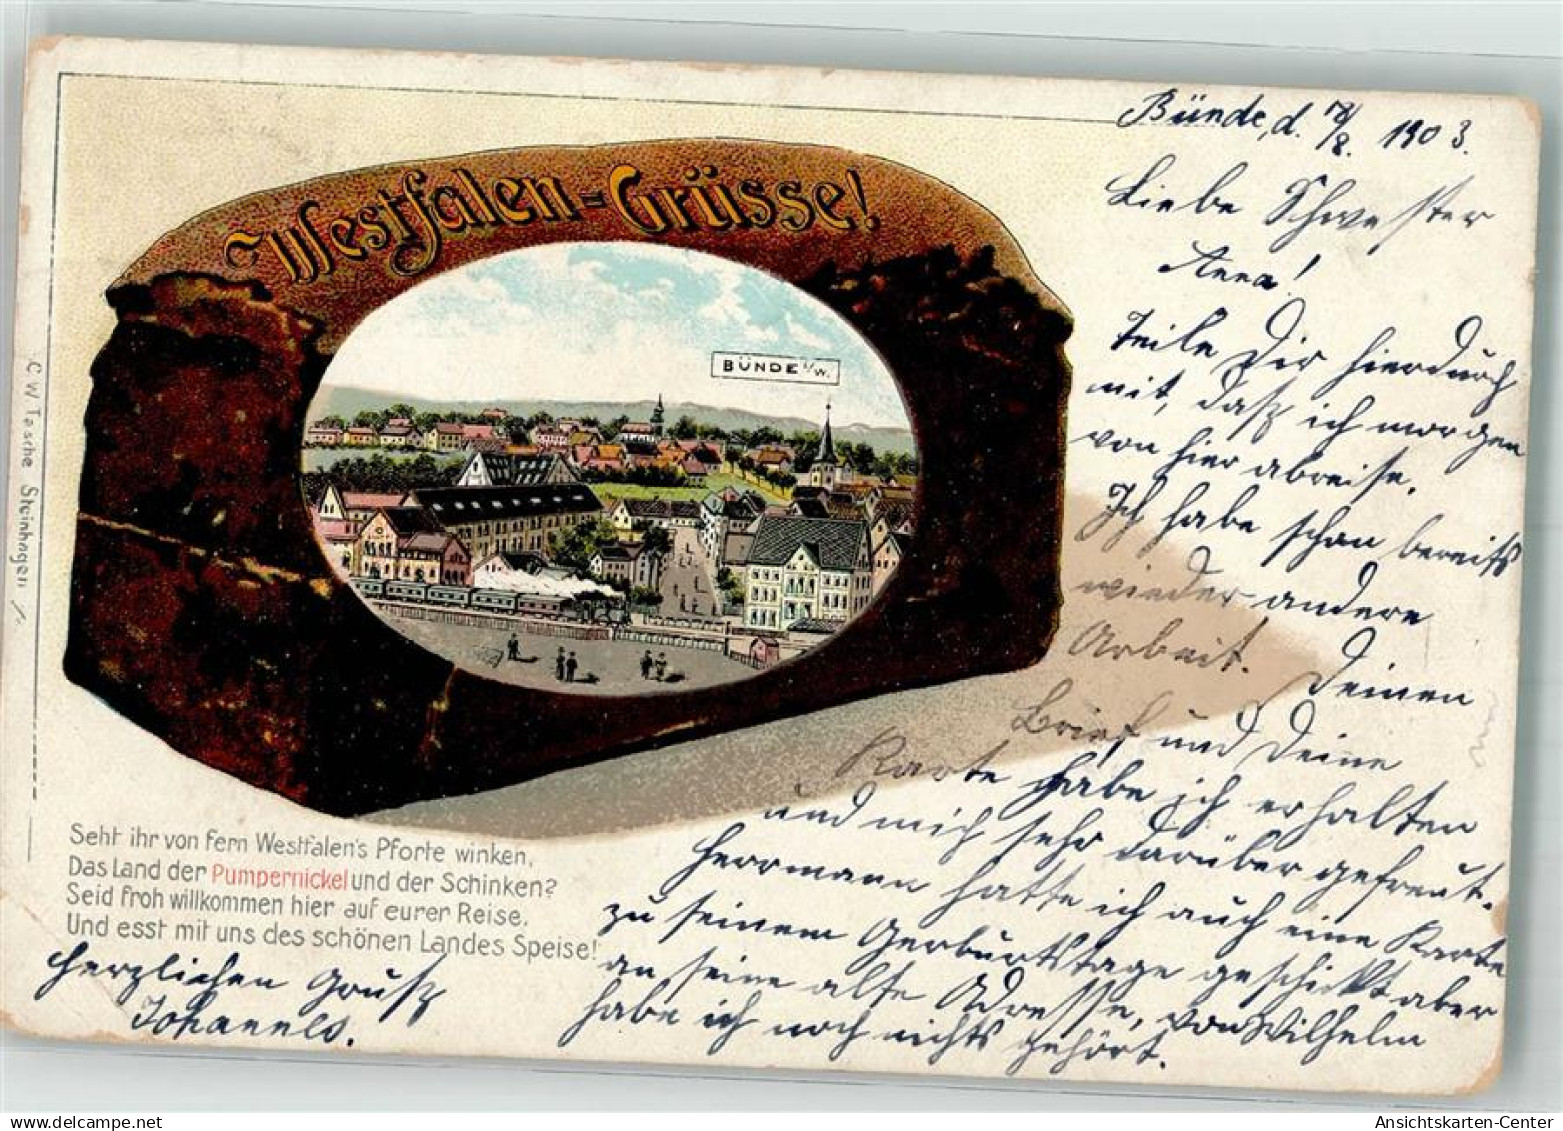 Westfalen-Grüsse!
BÜNDE i/W.
C. W. Tasche Steinhagen i/
Seht ihr von fern Westfalen's Pforte winken,
Das Land der Pumpernickel und der Schinken?
Seid froh willkommen hier auf eurer Reise,
Und esst mit uns des schönen Landes Speise!
Bünde, d. /8. 1903.
Liebe Schwester
Anna!
Teile Dir hierdurch
mit, daß ich morgen
von hier abreise.
Ich habe schon bereits
wieder andere
Arbeit. Deinen
Brief und Deine
Karte habe ich erhalten
und mich sehr darüber gefreut.
Herrmann hatte ich auch eine Karte
zu seinem Gerburtstage geschickt aber
an seine alte Adresse, von Wilhelm
habe ich noch nichts gehört.
Herzlichen Gruß
Johannes.
Ansichtskarten-Center